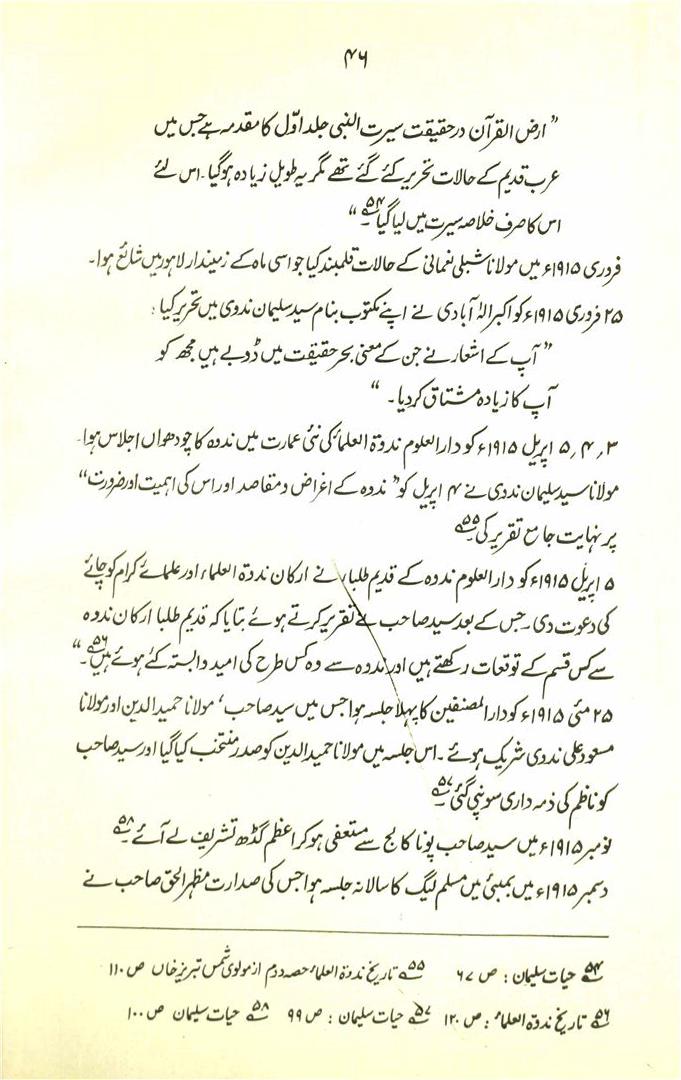 ۴۶
" ارض القرآن درحقیقت سیرت النبی جلد اوّل کا مقدمہ ہے جس میں
عرب قدیم کے حالات تحریر کئے گئے تھے مگر یہ طویل زیادہ ہوگیا۔ اس لئے
اس کا صرف خلاصہ سیرت میں لیا گیا۔۵۴ "
فروری ۱۹۱۵ء میں مولانا شبلی نعمانی کے حالات قلمبند کیا جو اسی ماہ کے زمیندار لاہور میں شائع ہوا۔
۲۵ فروری ۱۹۱۵ء کو اکبر الٰہ آبادی نے اپنے مکتوب بنام سید سلیمان ندوی میں تحریر کیا :
" آپ کے اشعار نے جن کے معنی بحر حقیقت میں ڈوبے ہیں مجھ کو
آپ کا زیادہ مشتاق کردیا۔ "
۳ ,۴ ,۵ اپریل ۱۹۱۵ء کو دار العلوم ندوۃ العلماء کی نئی عمارت میں ندوہ کا چودھواں اجلاس ہوا۔
مولانا سید سلیمان ندوی نے ۴ اپریل کو " ندوہ کے اغراض و مقاصد اور اس کی اہمیت اور ضرورت "
پر نہایت جامع تقریر کی۔۵۵
۵ اپریل ۱۹۱۵ء کو دار العلوم ندوہ کے قدیم طلباء نے ارکان ندوۃ العلماء اور علمائے کرام کو چائے
کی دعوت دی۔ جس کے بعد سید صاحب نے تقریر کرتے ہوئے بتایا کہ قدیم طلبا ارکان ندوہ
سے کس قسم کے توقعات رکھتے ہیں اور ندوہ سے وہ کس طرح کی امید وابستہ کئے ہوئے ہیں۔۵۶ "
۲۵ مئی ۱۹۱۵ء کو دار المصنفین کا پہلا جلسہ ہوا جس میں سید صاحب ‘ مولانا حمید الدین اور مولانا
مسعود علی ندوی شریک ہوئے۔ اس جلسہ میں مولانا حمید الدین کو صدر منتخب کیا گیا اور سید صاحب
کو ناظم کی ذمہ داری سونپی گئی۔۵۷
نومبر ۱۹۱۵ء میں سید صاحب پونا کالج سے مستعفی ہوکر اعظم گڈھ تشریف لے آئے۔۵۸
دسمبر ۱۹۱۵ء میں بمبئی میں مسلم لیگ کا سالانہ جلسہ ہوا جس کی صدارت مظہر الحق صاحب نے
۵۴ حیات سلیمان : ص ۶۷ ۵۵ تاریخ ندوۃ العلماء حصہ دوم از مولوی شمس تبریز خاں ص ۱۱۰
۵۶ تاریخ ندوۃ العلماء : ص ۱۲۰ ۵۷ حیات سلیمان : ص ۹۹ ۵۸ حیات سلیمان ص ۱۰۰